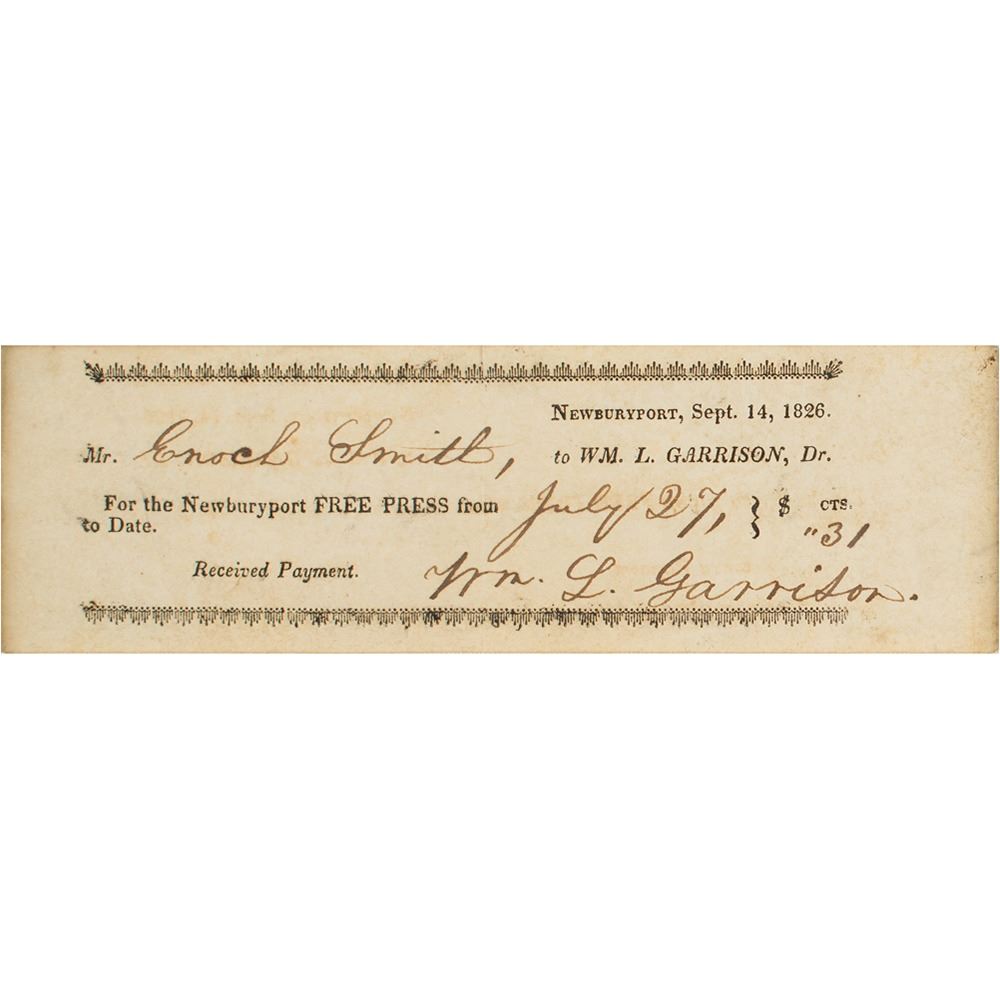 Newburyport, Sept. 14, 1826.
Mr. Enoch Smith, to WM. L. GARRISON, Dr.
For the Newburyport FREE PRESS from July 27, } $ CTS.
to Date. " 31
Received Payment. Wm. L. Garrison.